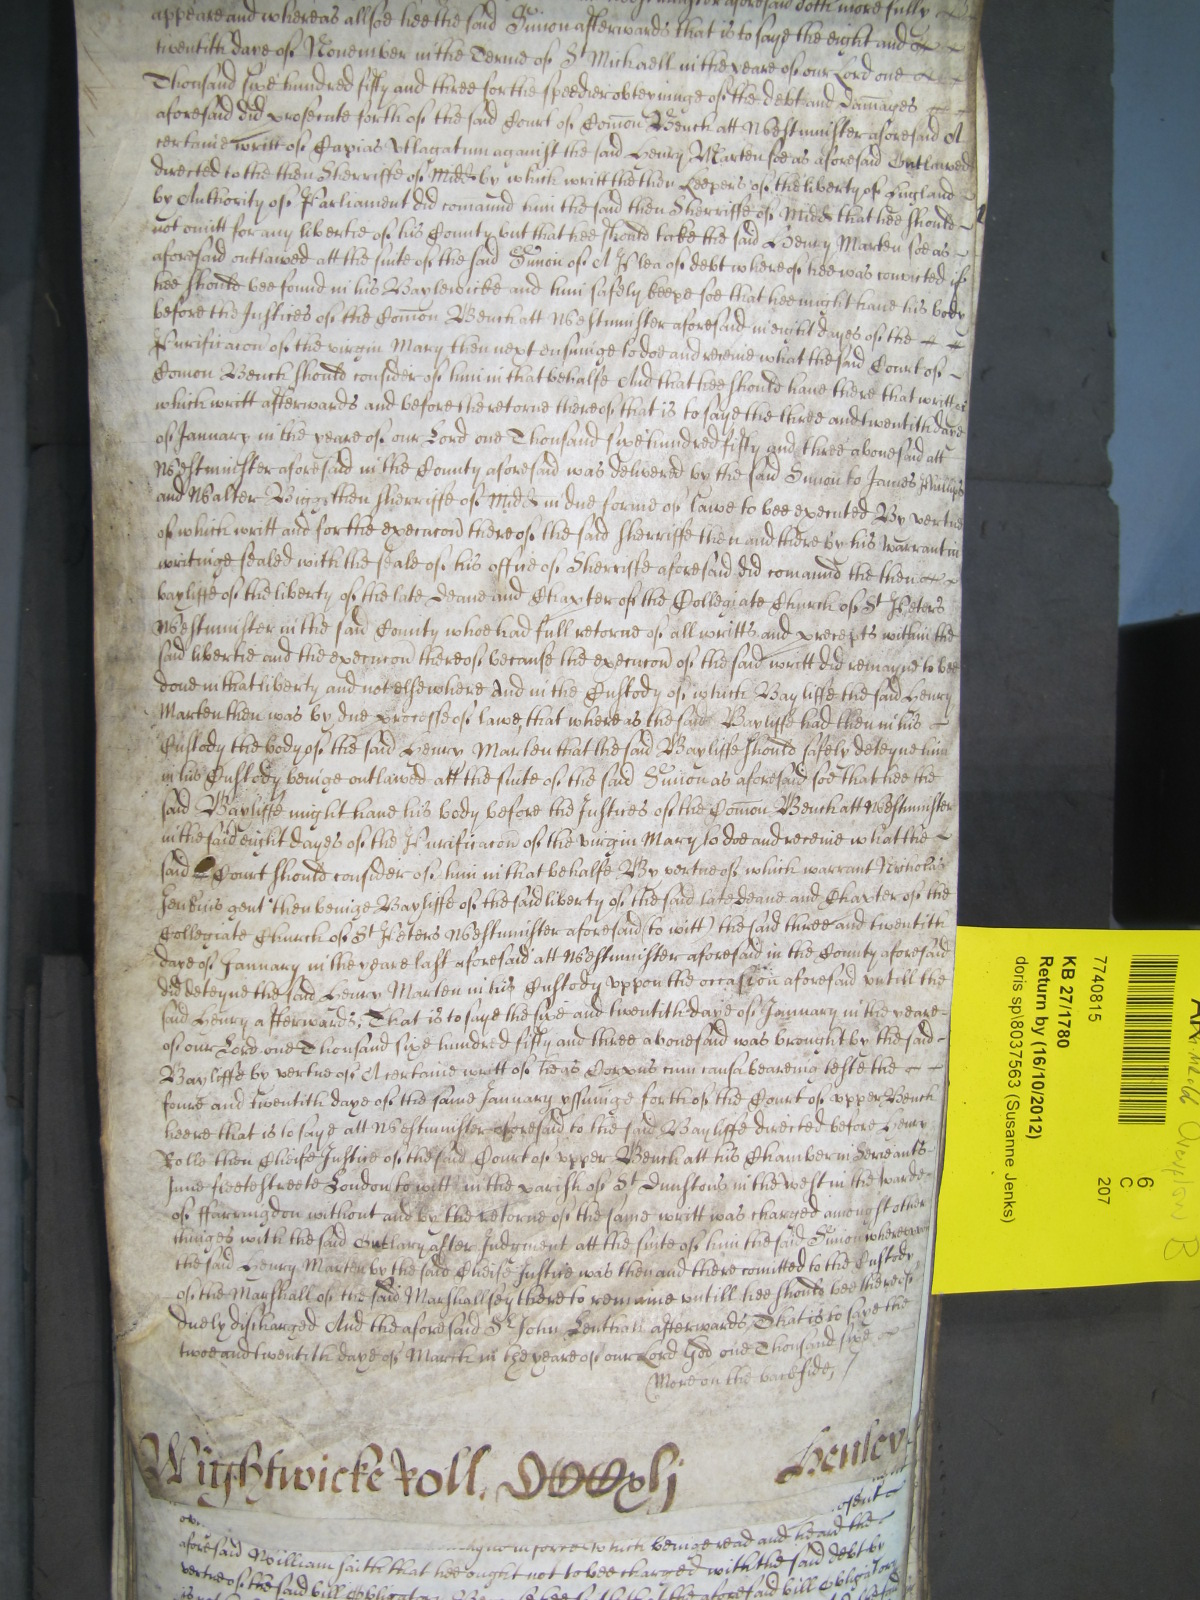 appeare and whereas allsoe hee the said Simon afterwards that is to saye the eight and
twentith daye of November in the Terme of St Michaell in the yeare of our Lord one
Thousand sixe hundred fifty and three for the speedier obteyninge of the debt and damages
aforesaid did prosecute forth of the said Court of Comon Bench att Westminster aforesaid A
certaine writt of Capias Utlagatum against the said Henry Marten soe as aforesaid Outlawed
directed to the then Sherriffe of Midd by which writt the then Keepers of the liberty of England
by Authority of Parliament did comaund him the said then Sherriffe of Midd that hee should
not omitt for any libertie of his County but that hee should take the said Henry Marten soe as
aforesaid outlawed att the suite of the said Simon of A Plea of debt whereof hee was convicted if
hee should bee found in his Baylewicke and him safely keepe soe that hee might have his body
before the Justices of the Comon Bench att Westminster aforesaid in eight dayes of the
Purificacon of the virgin Mary then next ensuinge to doe and receive what the said Court of
Comon Bench should consider of him in that behalfe And that hee should have there that writt
which writt afterwards and before the retorne thereof that is to saye the three and twentith daye
of January in the yeare of our Lord one Thousand sixe hundred fifty and three abovesaid att
Westminster aforesaid in the County aforesaid was delivered by the said Simon to James Phillips
and Walter Bigg then Sherriffe of Midd in due forme of lawe to bee executed By vertue
of which writt and for the execucon thereof the said Sherriffe then and there by his Warrant in
writinge sealed with the seale of his office of Sherriffe aforesaid did comaund the then
bayliffe of the liberty of the late Deane and Chapter of the Collegiate Church of St Peters
Westminster in the said County whoe had full retorne of all writts and precepts within the
said libertie and the execucon thereof because the execucon of the said writt did remayne to bee
done in that liberty and not elsewhere And in the Custody of which Bayliffe the said Henry
Marten then was by due processe of lawe, that whereas the said Bayliffe had then in his
Custody the body of the said Henry Marten that the said Bayliffe should safely deteyne him
in his Custody beinge outlawed att the suite of the said Simon as aforesaid soe that hee the
said Bayliffe might have his body before the Justices of the Comon Bench att Westminster
in the said eight dayes of the Purificacon of the virgin Mary to doe and receive what the
said Court should consider of him in that behalfe By vertue of which warrant Nicholas
Jenkins gent then beinge Bayliffe of the said liberty of the said late Deane and Chapter of the
Collegiate Church of St Peters Westminster aforesaid (to witt) the said three and twentith
daye of January in the yeare last aforesaid att Westminster aforesaid in the County aforesaid
did deteyne the said Henry Marten in his Custody uppon the occasion aforesaid untill the
said Henry afterwards, That is to saye the sixe and twentith daye of January in the yeare
of our Lord one Thousand sixe hundred fifty and three abovesaid was brought by the said
Bayliffe by vertue of A certaine writt of heas Corpus cum causa beareing teste the
foure and twentith daye of the same January yssuinge forth of the Court of upper Bench
heere that is to saye att Westminster aforesaid to the said Bayliffe directed before Henry
Rolle then Cheife Justice of the said Court of upper Bench att his Chamber in Sereants
Inne fleetestreete London to witt in the parish of St Dunstons in the west in the warde
of ffarringdon without and by the retorne of the same writt was charged amongst other
thinges with the said Outlary after Judgment att the suite of him the said Simon whereupon
the said Henry Marten by the said Cheife Justice was then and there comitted to the Custody
of the Marshall of the said Marshallsey there to remaine untill hee should bee thereof
duely discharged And the aforesaid Sr John Lenthall afterwards, That is to saye the
twoe and twentith daye of March in the yeare of our Lord God one Thousand sixe
(More on the backside)
Wightwicke Roll. DCCCxlj Henley
which beinge read and heard the
aforesaid William saith that hee ought not to bee charged with the said debt by
vertue of the said bill Obligatory
7740815
KB 27/1780
Return by (16/10/2012)
doris sp\8037563 (Susanne Jenks)
6
C
207